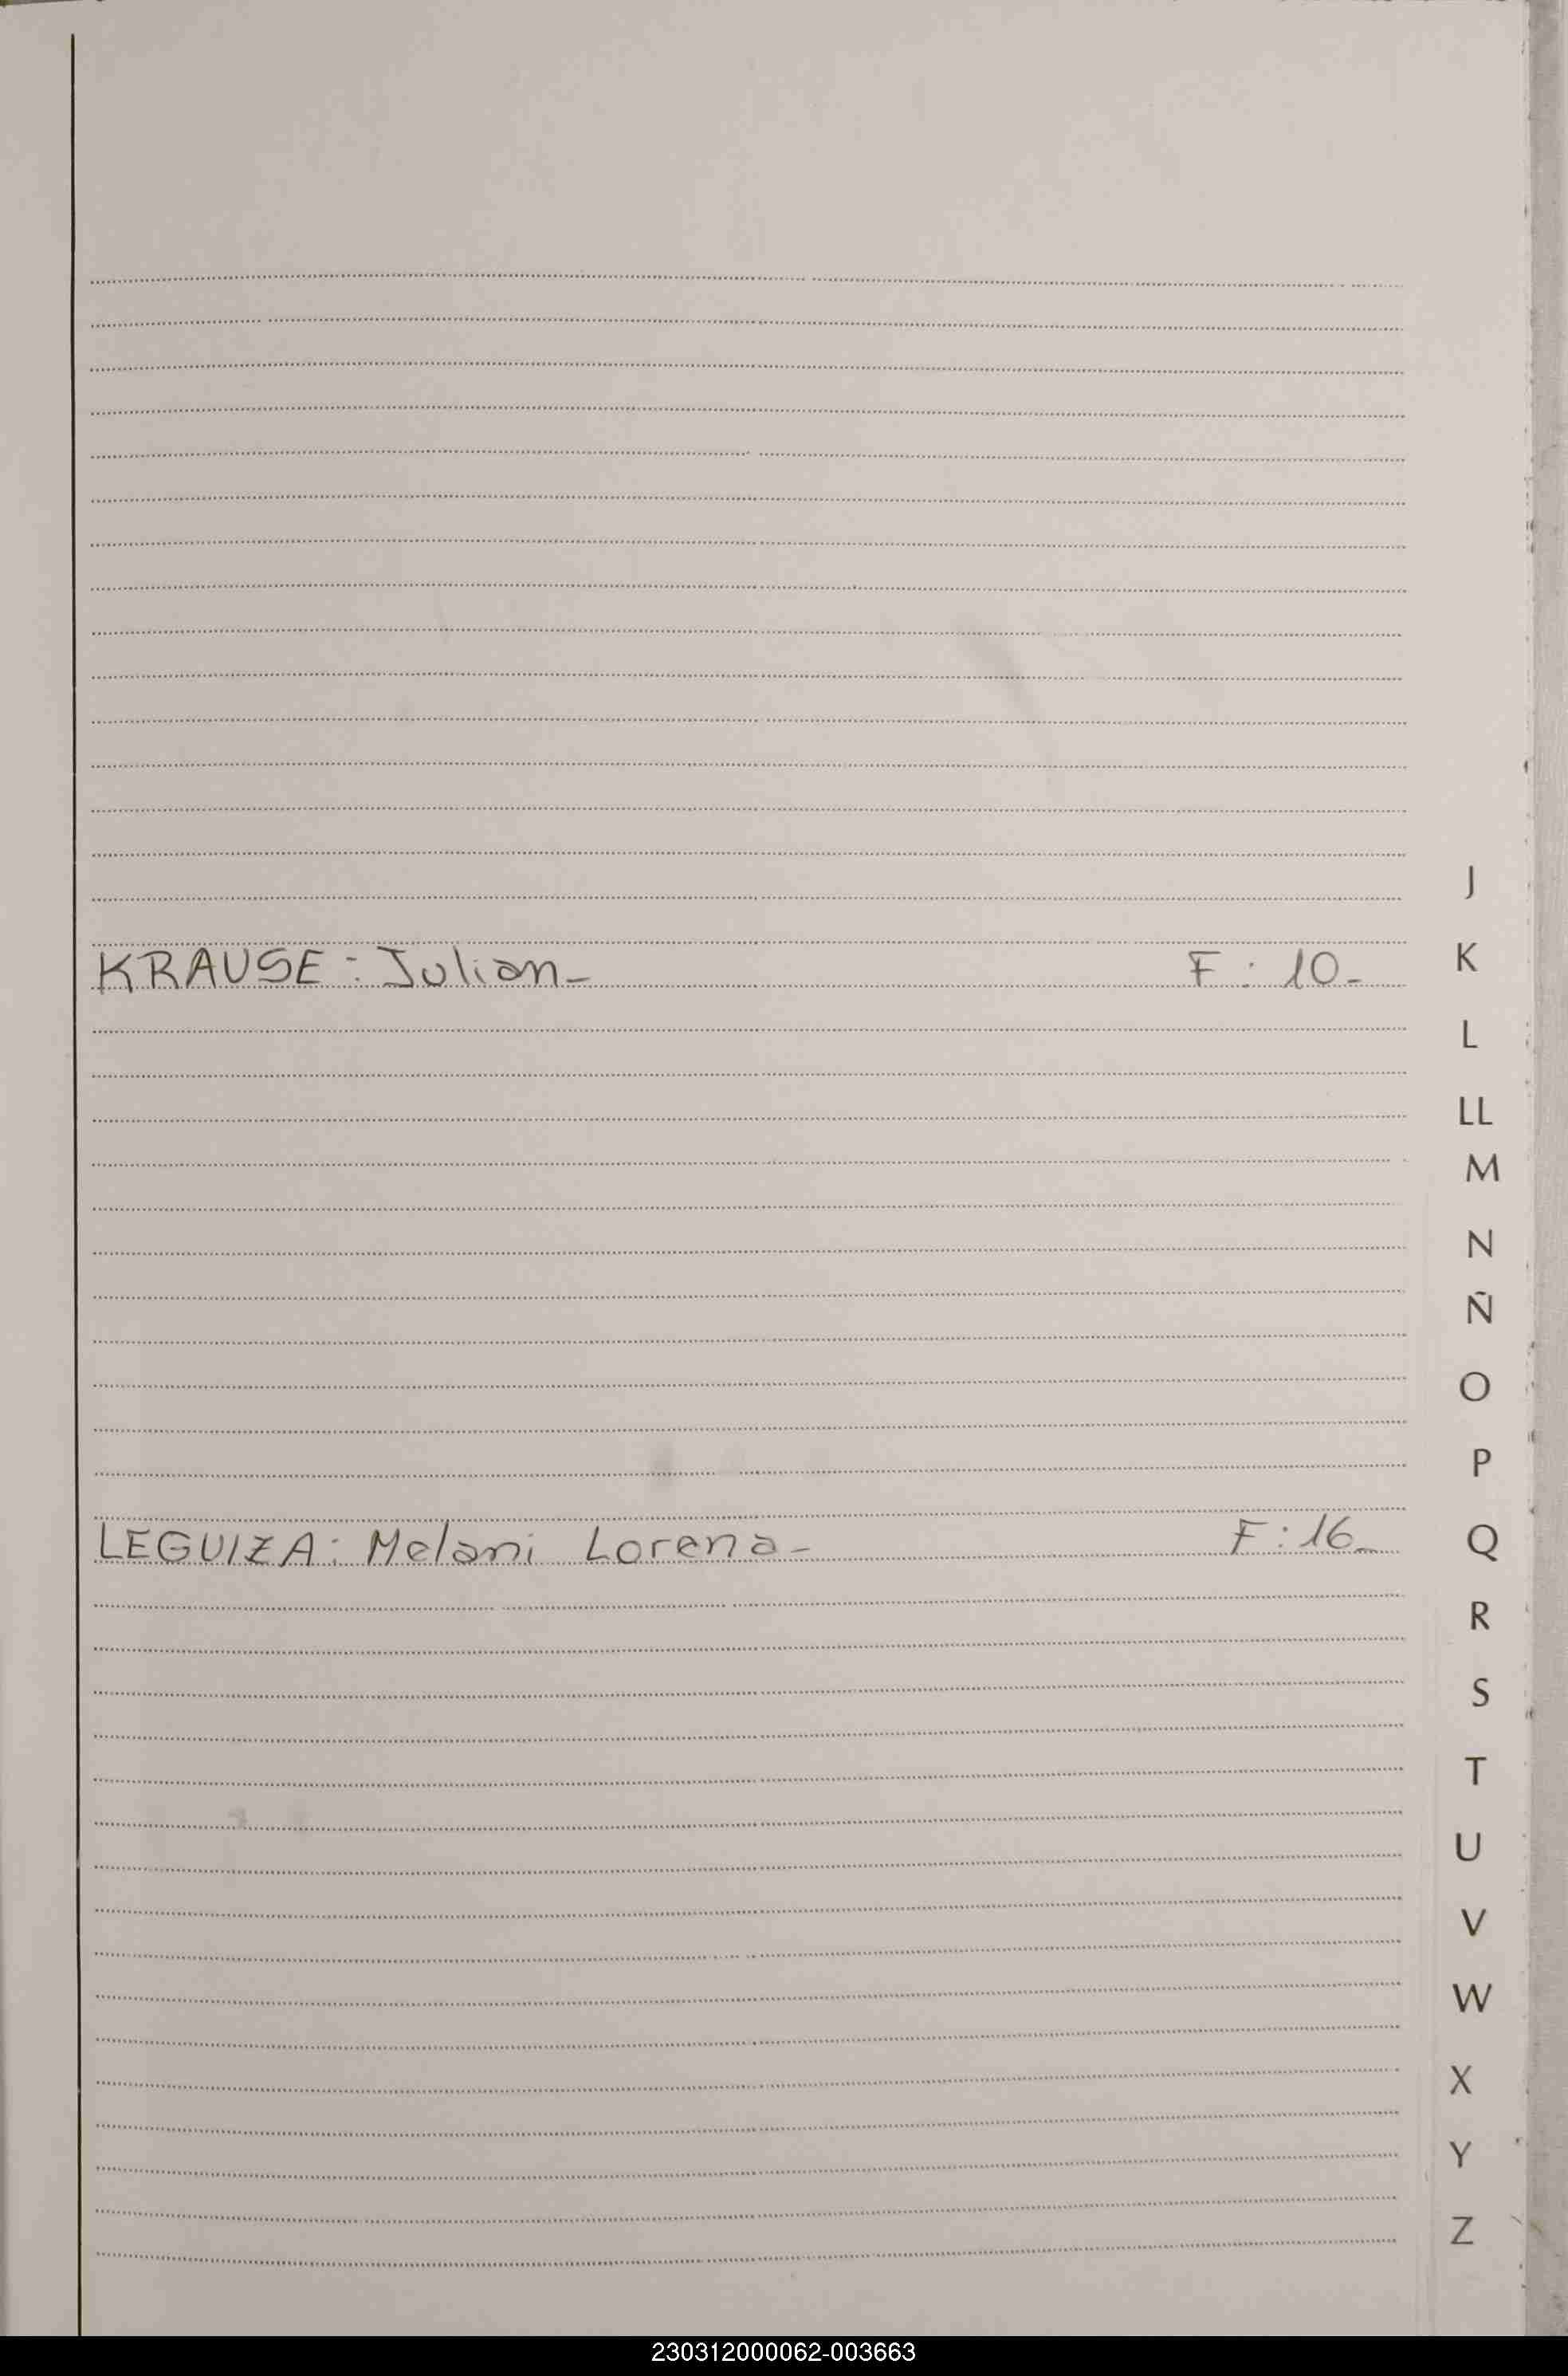 J
KRAUSE: Julian- F: 10- K
L
LL
M
N
Ñ
O
P
LEGUIZA: Melani Lorena- F: 16- Q
R
S
T
U
V
W
X
Y
Z
230312000062-003663